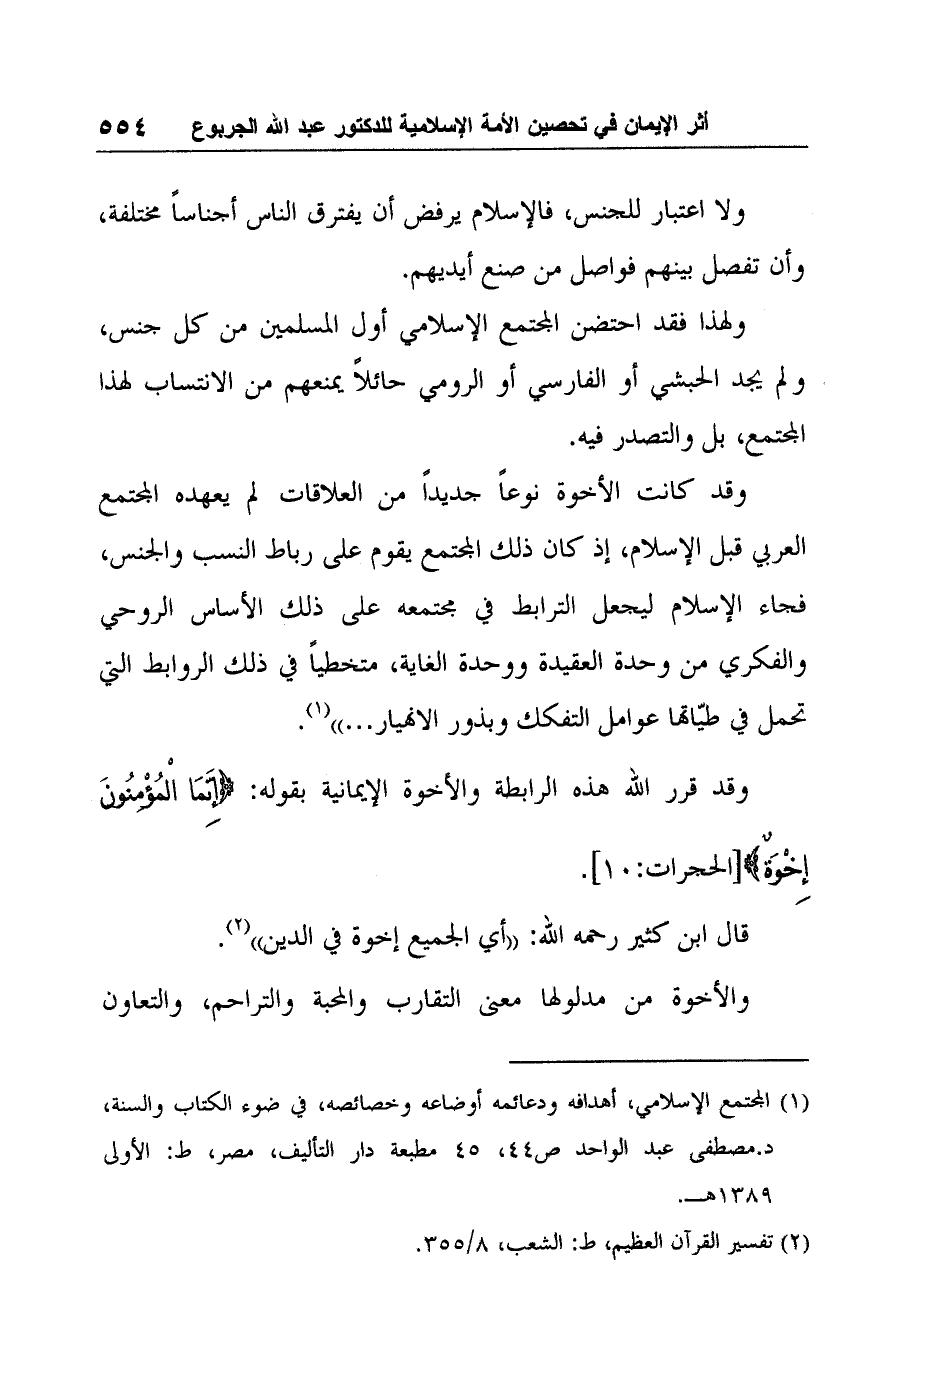 أثر الإيمان في تحصين الأمة الإسلامية للدكتور عبد الله الجربوع ٥٥٤
ولا اعتبار للجنس، فالإسلام يرفض أن يفترق الناس أجناساً مختلفة،
وأن تفصل بينهم فواصل من صنع أيديهم.
ولهذا فقد احتضن المجتمع الإسلامي أول المسلمين من كل جنس،
ولم يجد الحبشي أو الفارسي أو الرومي حائلاً يمنعهم من الانتساب لهذا
المجتمع، بل والتصدر فيه.
وقد كانت الأخوة نوعاً جديداً من العلاقات لم يعهده المجتمع
العربي قبل الإسلام، إذ كان ذلك المجتمع يقوم على رباط النسب والجنس،
فجاء الإسلام ليجعل الترابط في مجتمعه على ذلك الأساس الروحي
والفكري من وحدة العقيدة ووحدة الغاية، متخطياً في ذلك الروابط التي
تحمل في طيّاتها عوامل التفكك وبذور الانهيار...))(١).
وقد قرر الله هذه الرابطة والأخوة الإيمانية بقوله: ﴿إِنَّمَا الْمُؤْمِنُونَ
إِخْوَةٌ﴾[الحجرات:١٠].
قال ابن كثير رحمه الله: ((أي الجميع إخوة في الدين))(٢).
والأخوة من مدلولها معنى التقارب والمحبة والتراحم، والتعاون
(١) المجتمع الإسلامي، أهدافه ودعائمه أوضاعه وخصائصه، في ضوء الكتاب والسنة،
د.مصطفى عبد الواحد ص٤٤، ٤٥ مطبعة دار التأليف، مصر، ط: الأولى
١٣٨٩هـ.
(٢) تفسير القرآن العظيم، ط: الشعب، ٣٥٥/٨.